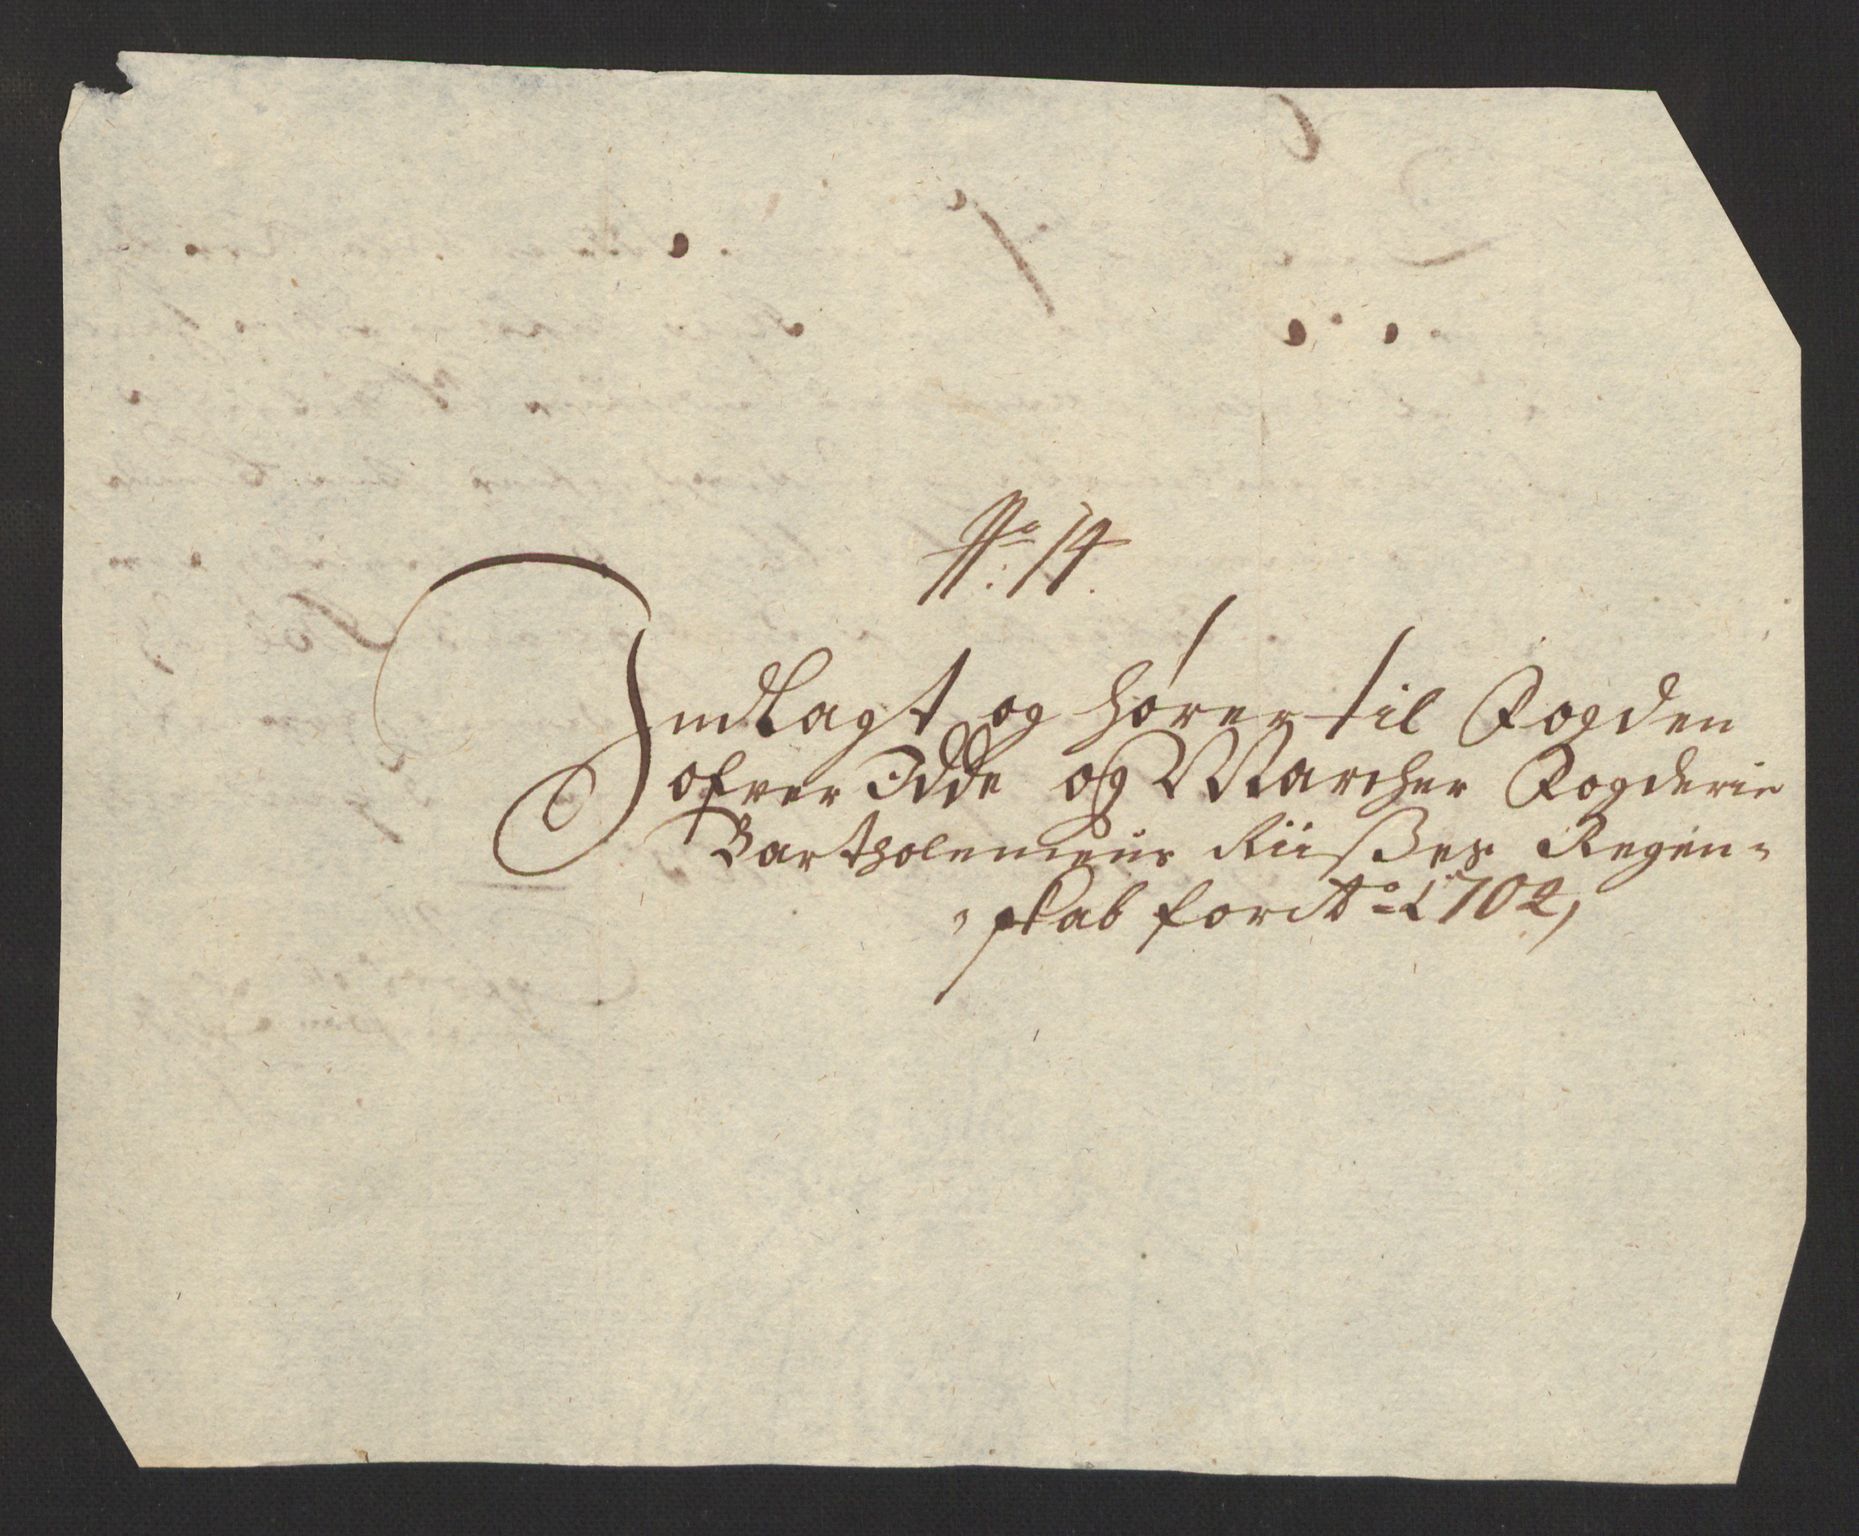 No: 14.
Indlagt og hører til Fogden
ofver Idde og Marcher Fogderie
Bartholemeus Riisßes Regen=
=skab for Ao 1702,